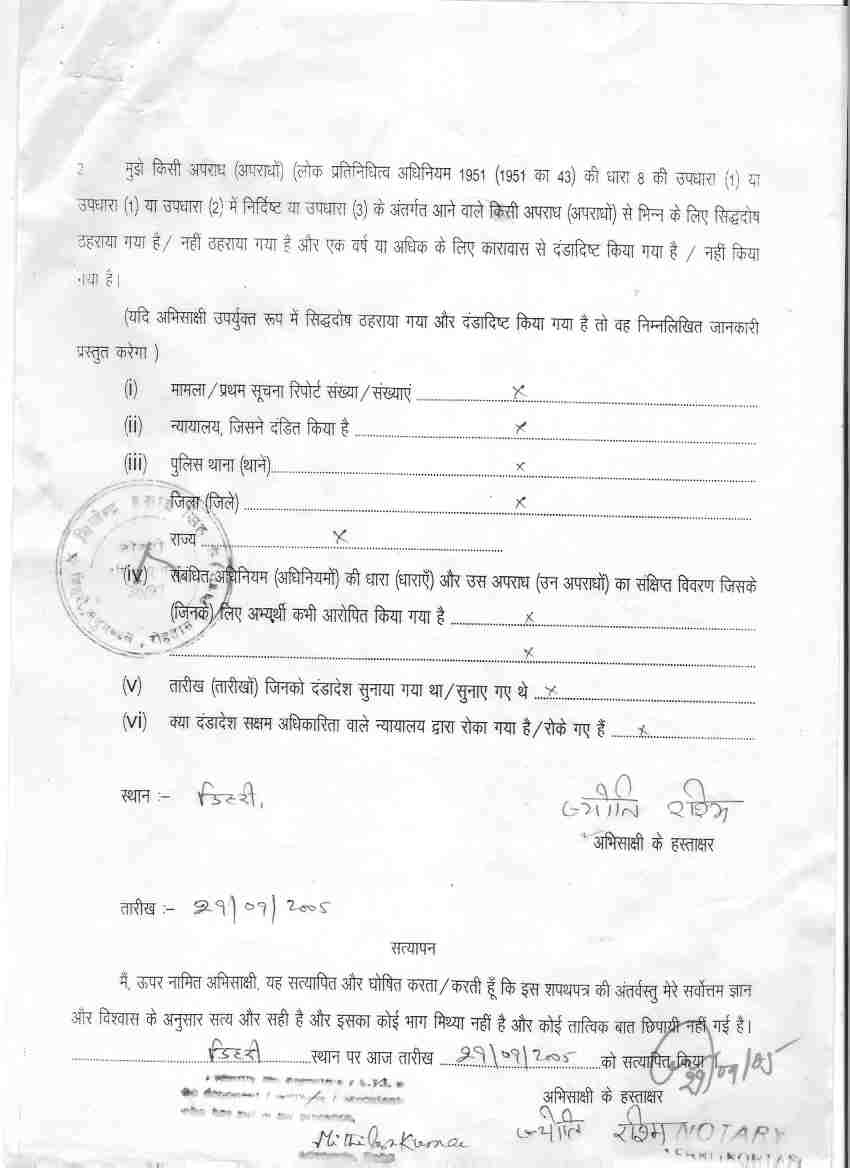 2 मुझे किसी अपराध (अपराधों) (लोक प्रतिनिधित्व अधिनियम 1951 (1951 का 43) की धारा 8 की उपधारा (1) या
उपधारा (1) या उपधारा (2) में निर्दिष्ट या उपधारा (3) के अंतर्गत आने वाले किसी अपराध (अपराधों) से भिन्न के लिए सिद्धदोष
ठहराया गया है / नहीं ठहराया गया है और एक वर्ष या अधिक के लिए कारावास से दंडादिष्ट किया गया है / नहीं किया
गया है।
(यदि अभिसाक्षी उपर्युक्त रूप में सिद्धदोष ठहराया गया और दंडादिष्ट किया गया है तो वह निम्नलिखित जानकारी
प्रस्तुत करेगा )
(i) मामला/प्रथम सूचना रिपोर्ट संख्या/संख्याएं x
(ii) न्यायालय, जिसने दंडित किया है x
(iii) पुलिस थाना (थाने) x
जिला (जिले) x
राज्य x
(iv) संबंधित अधिनियम (अधिनियमों) की धारा (धाराएँ) और उस अपराध (उन अपराधों) का संक्षिप्त विवरण जिसके
(जिनके) लिए अभ्यर्थी कभी आरोपित किया गया है x
x
(v) तारीख (तारीखों) जिनको दंडादेश सुनाया गया था/सुनाए गए थे x
(vi) क्या दंडादेश सक्षम अधिकारिता वाले न्यायालय द्वारा रोका गया है/रोके गए हैं x
स्थान :- डिहरी,
ज्योति रश्मि
अभिसाक्षी के हस्ताक्षर
तारीख :- 29/09/2005
सत्यापन
मैं, ऊपर नामित अभिसाक्षी, यह सत्यापित और घोषित करता/करती हूँ कि इस शपथपत्र की अंतर्वस्तु मेरे सर्वोत्तम ज्ञान
और विश्वास के अनुसार सत्य और सही है और इसका कोई भाग मिथ्या नहीं है और कोई तात्विक बात छिपायी नहीं गई है।
डिहरी स्थान पर आज तारीख 29/09/2005 को सत्यापित किया
29/09/05
अभिसाक्षी के हस्ताक्षर
ज्योति रश्मि NOTARY